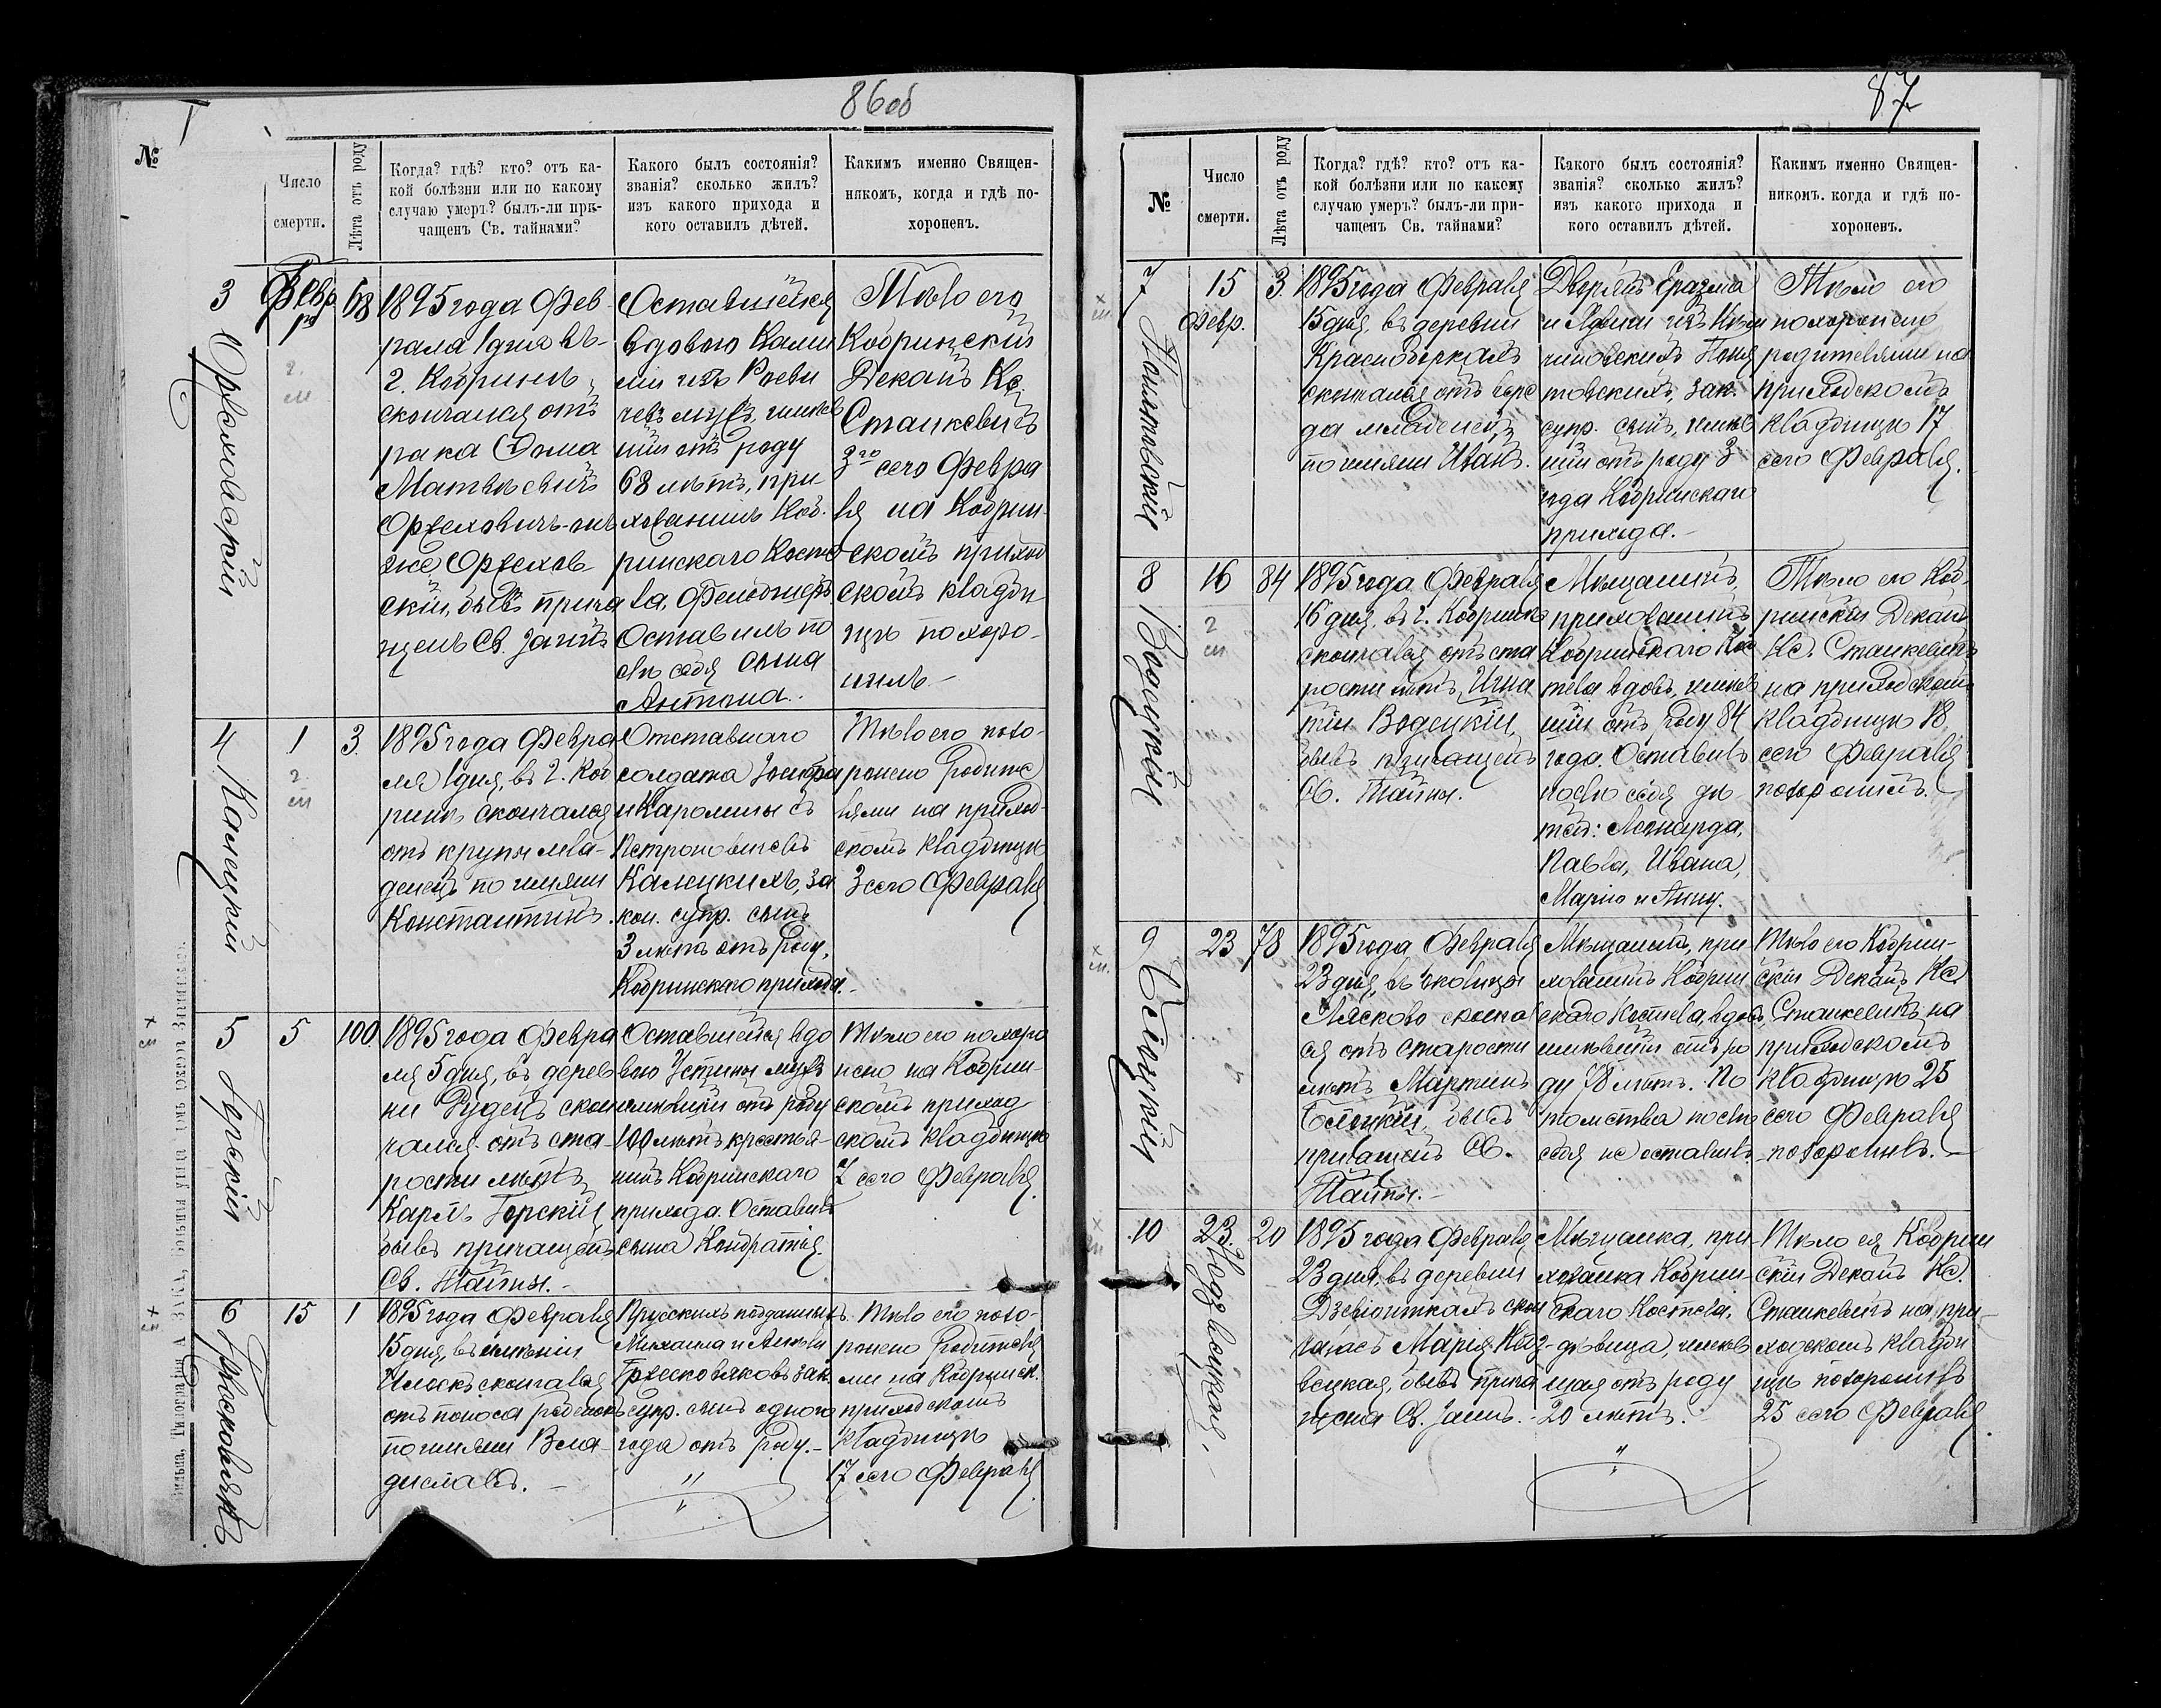 86об
№
Число смерти.
Лѣта отъ роду
Когда? гдѣ? кто? отъ ка-
кой болѣзни или по какому
случаю умеръ? былъ-ли при-
чащенъ Св. тайнами?
Какого былъ состоянія?
званія? сколько жилъ?
изъ какого прихода и
кого оставилъ дѣтей.
Какимъ именно Священ-
никомъ, когда и гдѣ по-
хороненъ.
3
Февр.
1го
68
1895 года Фев-
рала 1 дня въ
г. Кобринѣ,
скончался отъ
рака Ѳома
Матвѣевичъ
же
скій, бывъ прича
щенъ Св. Таинъ
Оставшейся
вдовою Камил
ліи изъ
чевъ мужъ, имѣв
шій отъ роду
68 лѣтъ, при
хожанинъ Коб-
ринскаго Косте
ла, Фельдшеръ.
Оставилъ по
слѣ себя сына
Антона.
Тѣло его
Кобринскій
Деканъ Кс.
Станкевичъ
3го сего Февра
ля на Кобрин-
скомъ приход
скомъ кладби
щѣ похоро-
нилъ
4
Калецкій
1
3.
1895 года Февра
ля 1 дня, въ г. Коб
ринѣ скончался
отъ крупы мла-
денецъ по имени
Константинъ.
Отставного
солдата Іосифа
и Каролины съ
Петроновичевъ
Калецкихъ, за
кон. супр. сынъ
3 лѣта отъ роду,
Кобринскаго прихода.
Тѣло его похо-
ронено Родите
лями на приход-
скомъ кладбищѣ
3 сего Февраля
5
Горскій
5
100.
1895 года Февра
ля 5 дня, въ дерев
ни Рудецъ скон
чался отъ ста-
рости лѣтъ
Карлъ Горскій,
бывъ причащенъ
Св. Тайны.
Оставшейся вдо
вою Устины мужъ
имѣвшій отъ роду
100 лѣтъ крестья-
нинъ Кобринскаго
прихода. Оставилъ
сына Кондратія.
Тѣло его похоро
нено на Кобрин-
скомъ приход
скомъ кладбищѣ
7 сего Февраля.
6
15
1
1895 года Февраля
15 дня, въ имѣніи
Илоскъ скончался
отъ поноса ребенокъ
по имени Вла-
диславъ.
Прусскихъ подданныхъ
Михаила и
зак.
супр. сынъ одного
года отъ роду.
Тѣло его похо-
ронено Родителя
ми на Кобринск.
приходскомъ
кладбищѣ
17 сего Февраля.
87
№
Число смерти.
Лѣта отъ роду
Когда? гдѣ? кто? отъ ка-
кой болѣзни или по какому
случаю умеръ? былъ-ли при-
чащенъ Св. тайнами?
Какого былъ состоянія?
званія? сколько жилъ?
изъ какого прихода и
кого оставилъ дѣтей.
Какимъ именно Священ-
никомъ. когда и гдѣ по-
хороненъ.
7
15
Февр.
3.
1895 года Февраля
15 дня, въ деревни
скончался отъ
младенецъ,
по имени Иванъ.
Дворянъ Еразма
и изъ
зак.
супр. сынъ, имѣв
шій отъ роду 3
года Кобринскаго
прихода.
Тѣло его
похоронено
родителями на
приходскомъ
кладбищѣ 17
сего Февраля.
8
Водецкій
16
84
1895 года Февраля
16 дня, въ г. Кобринѣ
скончался отъ ста
рости лѣтъ, Игна
тій Водецкій,
бывъ причащенъ
Св. Тайны.
Мѣщанинъ,
прихожанинъ
Кобринскаго Кос
тела вдовъ, имѣв
шій отъ роду 84
года. Оставивъ
послѣ себя дѣ
тей: Леонарда,
Павла, Ивана,
Марію и Анну.
Тѣло его Коб-
ринскій Деканъ
Кс. Станкевичъ
на приходскомъ
кладбищѣ 18
сего Февраля
похоронилъ.
9
23
78
1895 года Февраля
23 дня, въ околицы
Лясково сконча
ся отъ старости
лѣтъ Мартинъ
бывъ
причащенъ Св.
Тайны.
Мѣщанинъ, при
хожанинъ Кобрин
скаго Костела, вдовъ,
имѣвшій отъ ро
ду 78 лѣтъ. По
томства послѣ
себя не оставивъ.
Тѣло его Кобрин-
скій Деканъ Кс.
Станкевичъ на
приходскомъ
кладбищѣ 25
сего Февраля
похоронилъ.
10
23.
20
1895 года Февраля
23 дня, въ деревни
скон
чалась Марія
бывъ прича
щена Св. Таинъ.
Мѣщанка, при
хожанка Кобрин-
скаго Костела,
дѣвица, имѣв
шая отъ роду
20 лѣтъ.
Тѣло ея Кобрин
скій Деканъ Кс.
Станкевичъ на при-
ходскомъ кладби
щѣ похоронивъ
25 сего Февраля.